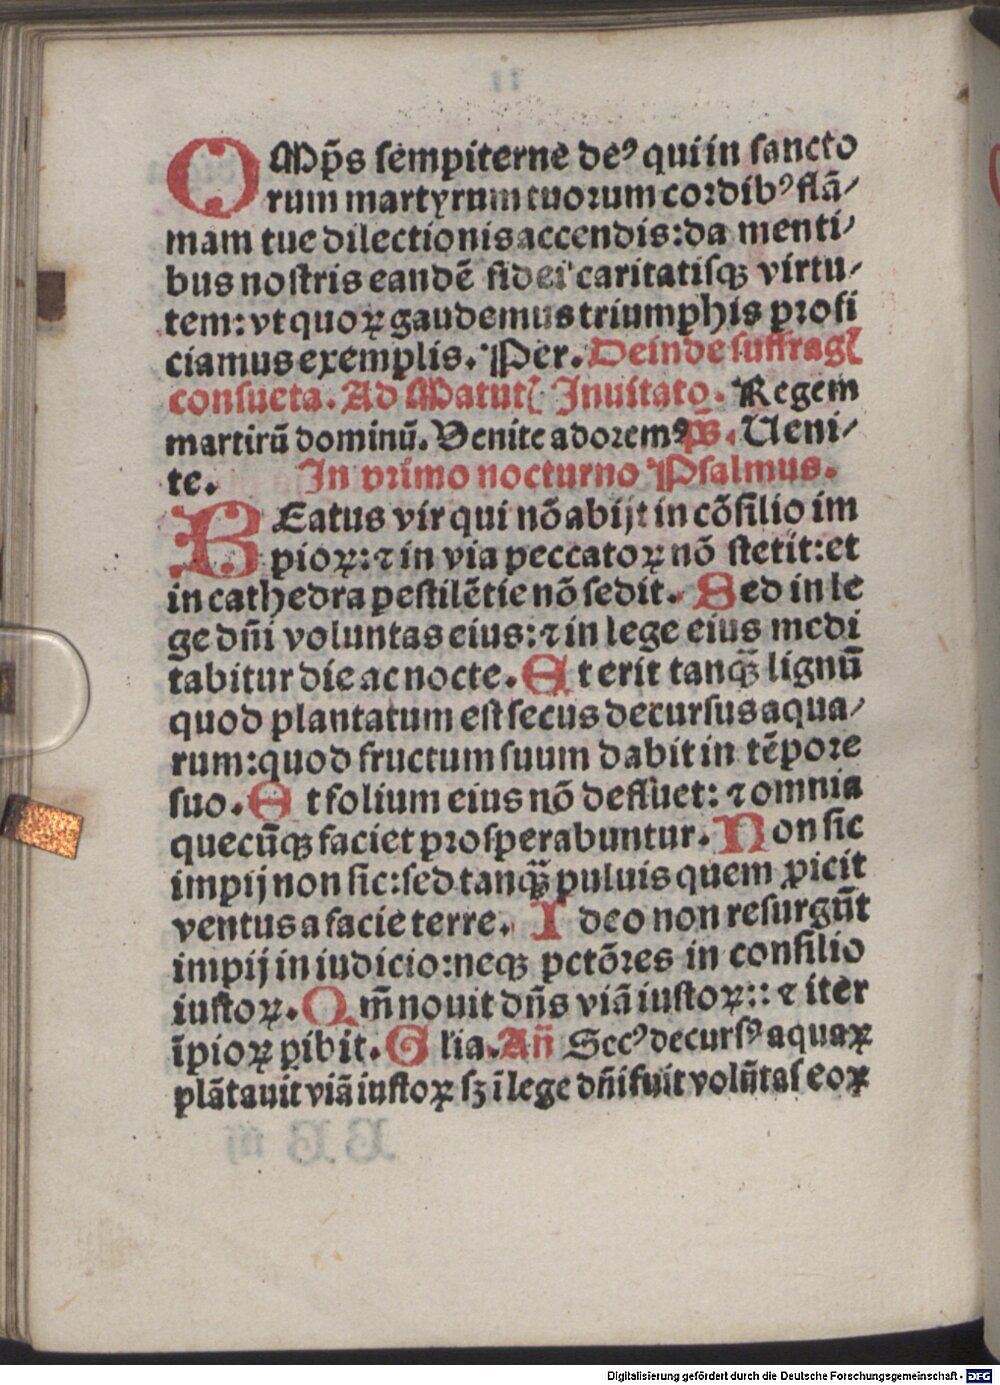 OMp̄s sempiterne deꝰ qui in sancto
rum martyrum tuorum cordibꝰ flā⸗
mam tue dilectionis accendis: da menti⸗
bus nostris eandē fidei caritatisqꝫ virtu⸗
tem: vt quoꝝ gaudemus triumphis profi
ciamus exemplis. Per. Deinde suffrag
consueta. Ad Matut Inuitato. Regem
martirū dominū. Venite adoremꝰ p̄s. Ueni⸗
te. In primo nocturno Psalmus.
BEatus vir qui nō abijt in cōsilio im
pioꝝ: ⁊ in via peccatoꝝ nō stetit: et
in cathedra pestilētie nō sedit. Sed in le
ge dn̄i voluntas eius: ⁊ in lege eius medi
tabitur die ac nocte. Et erit tanqꝫ̄ lignū
quod plantatum est secus decursus aqua⸗
rum: quod fructum suum dabit in tēpore
suo. Et folium eius nō defluet: ⁊ omnia
quecūqꝫ faciet prosperabuntur. Non sic
impij non sic: sed tanqꝫ̄ puluis quem ꝓicit
ventus a facie terre. Ideo non resurgūt
impij in iudicio: neqꝫ pctōres in consilio
iustoꝝ. Qm̄ nouit dn̄s viā iustoꝝ:: ⁊ iter
īpioꝝ ꝑibit. Glia. An̄ Secꝰ decursꝰ aquaꝝ
plātauit viā iustoꝝ sꝫ ī lege dn̄i fuit volūtas eoꝝ
Digitalisierung gefördert durch die Deutsche Forschungsgemeinschaft - DFG